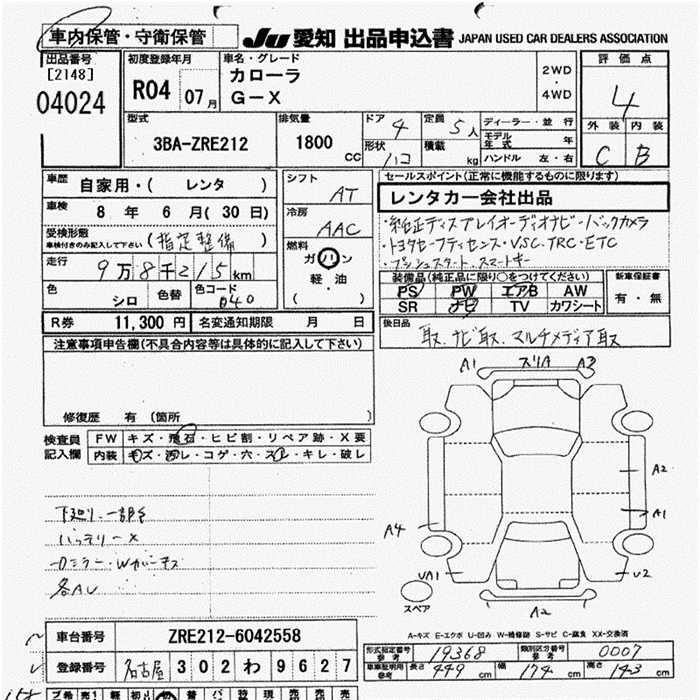 車内保管・守衛保管
JU 愛知 出品申込書 JAPAN USED CAR DEALERS ASSOCIATION
出品番号
[2148]
04024
初度登録年月
R04 07月
車名・グレード
カローラ
G-X
2WD
・
4WD
評価点
4
外装 内装
C B
型式
3BA-ZRE212
排気量
1800 CC
ドア 4
形状 ハコ
定員 5人
積載 kg
ディーラー・並行
モデル年式 年
ハンドル 左・右
車歴 自家用・( レンタ )
車検 8 年 6 月 ( 30 日)
受検形態
車検付きのみ記入して下さい (指定整備)
走行 9万8千215km
色 シロ 色替 色コード 040
シフト AT
冷房 AAC
燃料
ガソリン
軽・油
( )
セールスポイント(正常に機能するものに限ります)
レンタカー会社出品
・純正ディスプレイオーディオナビ・バックカメラ
・トヨタセーフティセンス・VSC・TRC・ETC
・プッシュスタート、スマートキー
装備品(純正品に限り○をつけてください)
PS PW エアB AW
SR ナビ TV カワシート
新車保証書
有・無
R券 11,300 円 名変通知期限 月 日
後日品
取、ナビ取、マルチメディア取
注意事項申告欄(不具合内容等は具体的に記入して下さい)
修復歴 有 (箇所 )
検査員
記入欄
FW キズ・飛石・ヒビ割・リペア跡・X要
内装 キズ・汚レ・コゲ・穴・スレ・キレ・破レ
下廻り、一部サ
バッテリーX
各AU
A1 スリA A3
A2
A1
A4
UA1
U2
A2
スペア
A-キズ E-エクボ U-凹み W-補修跡 S-サビ C-腐食 XX-交換済
車台番号 ZRE212-6042558
登録番号 名古屋 302 わ 9627
型式指定番号
参考 19368
類別区分番号
参考 0007
車車証明用
参考 長さ 449 cm 幅 174 cm 高さ 143 cm